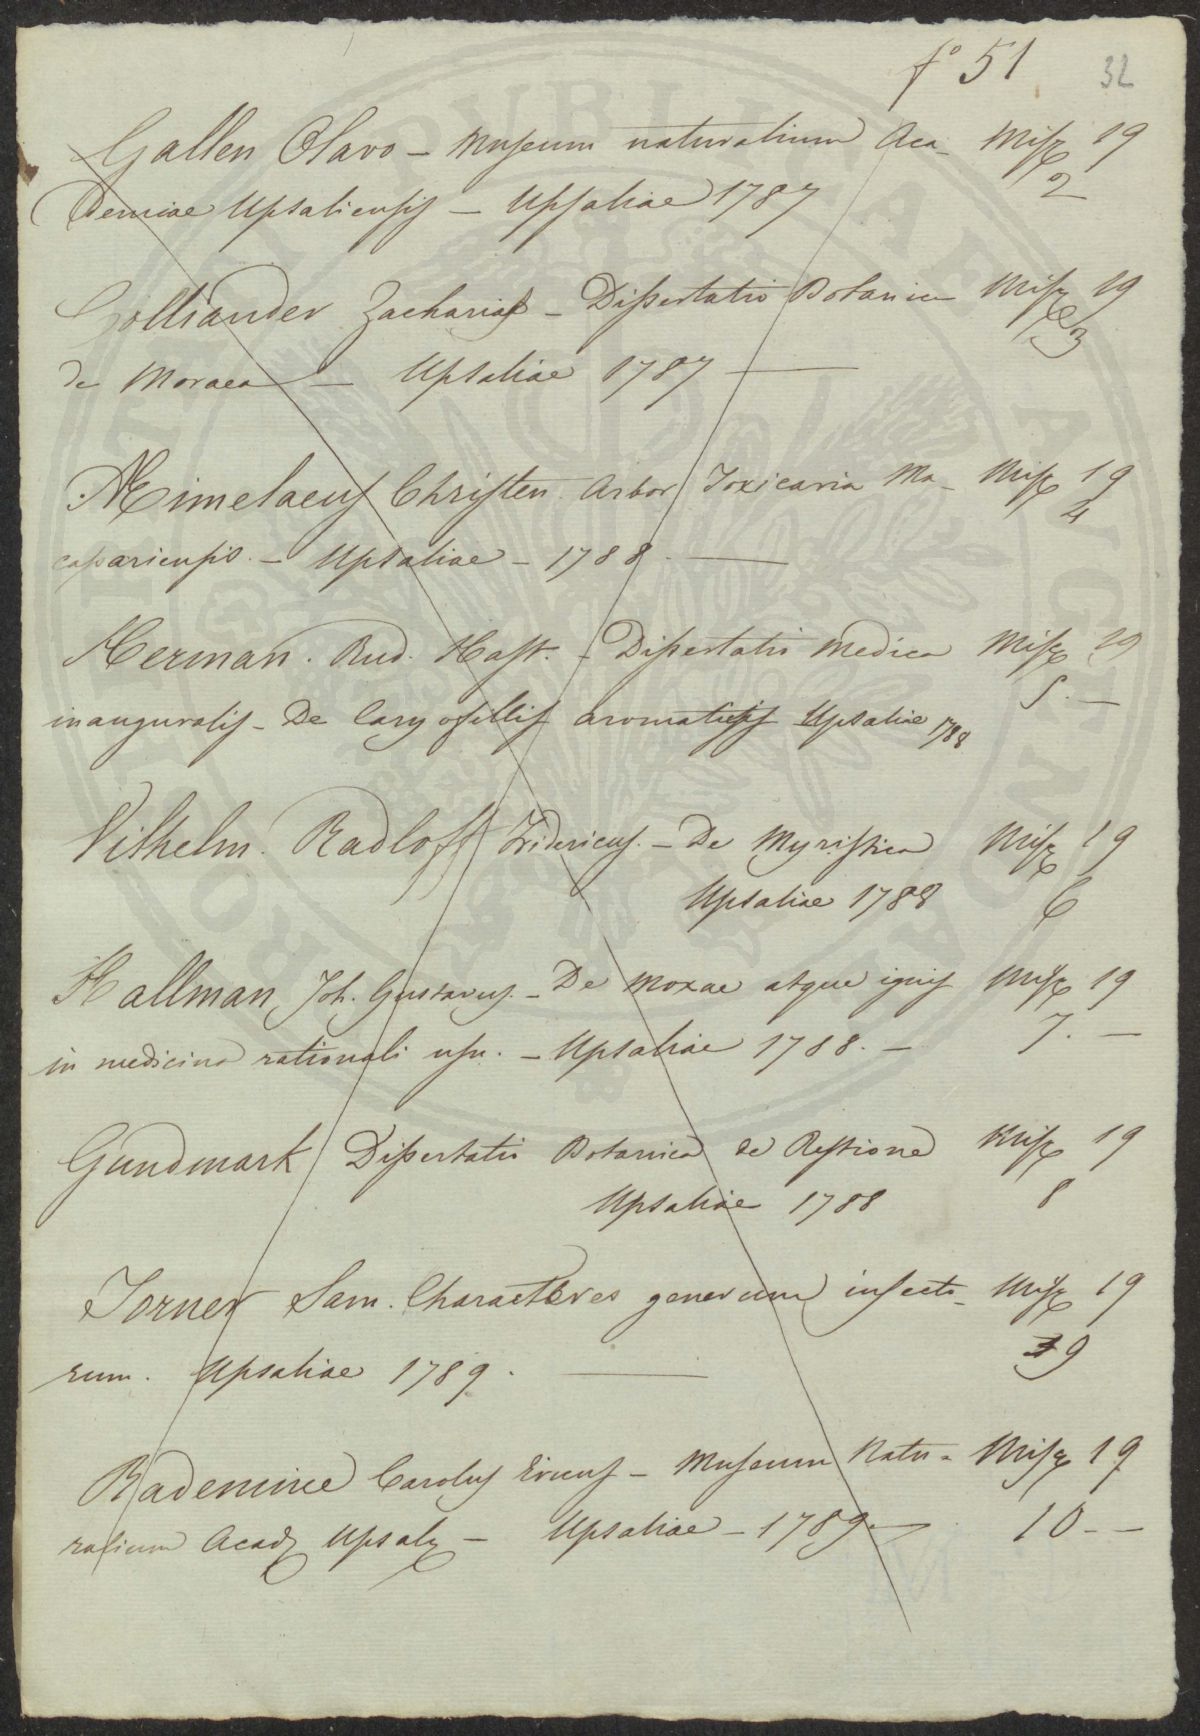 fo 51 32
Gallen Olavo - Museum naturalium Aca- Misc 19
demiae Upsaliensis - Upsaliae 1787 2
Colliander Zacharias - Dissertatio Botanica Misc 19
de Moraea - Upsaliae 1787 3
Aimelaeus Christen. Arbor Toxicaria Ma- Misc 19
cassariensis. - Upsaliae - 1788. 4
Herman. Rud. Hast. - Dissertatio medica Misc 19
inauguralis - De Caryofillis aromaticis Upsaliae 1788 5. -
Vilhelm. Radloff Fridericus. - De Myristica Misc 19
Upsaliae 1788 6
Hallman Joh. Gustavus. - De moxae atque ignis Misc 19
in medicina rationali usu. - Upsaliae 1788. - 7. -
Gundmark Dissertatio Botanica de Restione Misc 19
Upsaliae 1788 8
Torner Sam. Characteres generum insecto- Misc 19
rum. Upsaliae 1789. 9
Rademine Carolus Ericus - Museum Natu- Misc 19
ralium Acad Upsal - Upsaliae - 1789 10 -